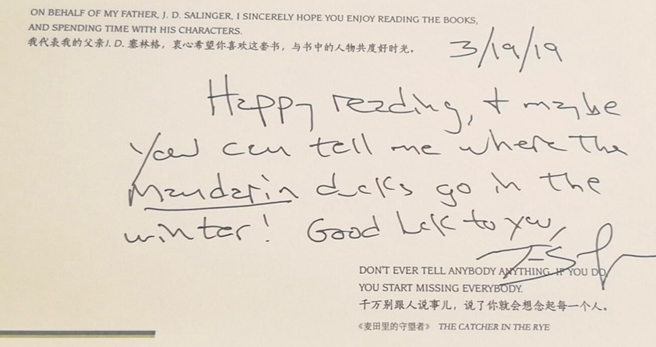 ON BEHALF OF MY FATHER, J. D. SALINGER, I SINCERELY HOPE YOU ENJOY READING THE BOOKS,
AND SPENDING TIME WITH HIS CHARACTERS.
我代表我的父亲J. D. 塞林格，衷心希望你喜欢这套书，与书中的人物共度好时光。
3/19/19
Happy reading, & maybe
you can tell me where the
Mandarin ducks go in the
winter! Good luck to you,
DON'T EVER TELL ANYBODY ANYTHING. IF YOU DO,
YOU START MISSING EVERYBODY.
千万别跟人说事儿，说了你就会想念起每一个人。
《麦田里的守望者》 THE CATCHER IN THE RYE